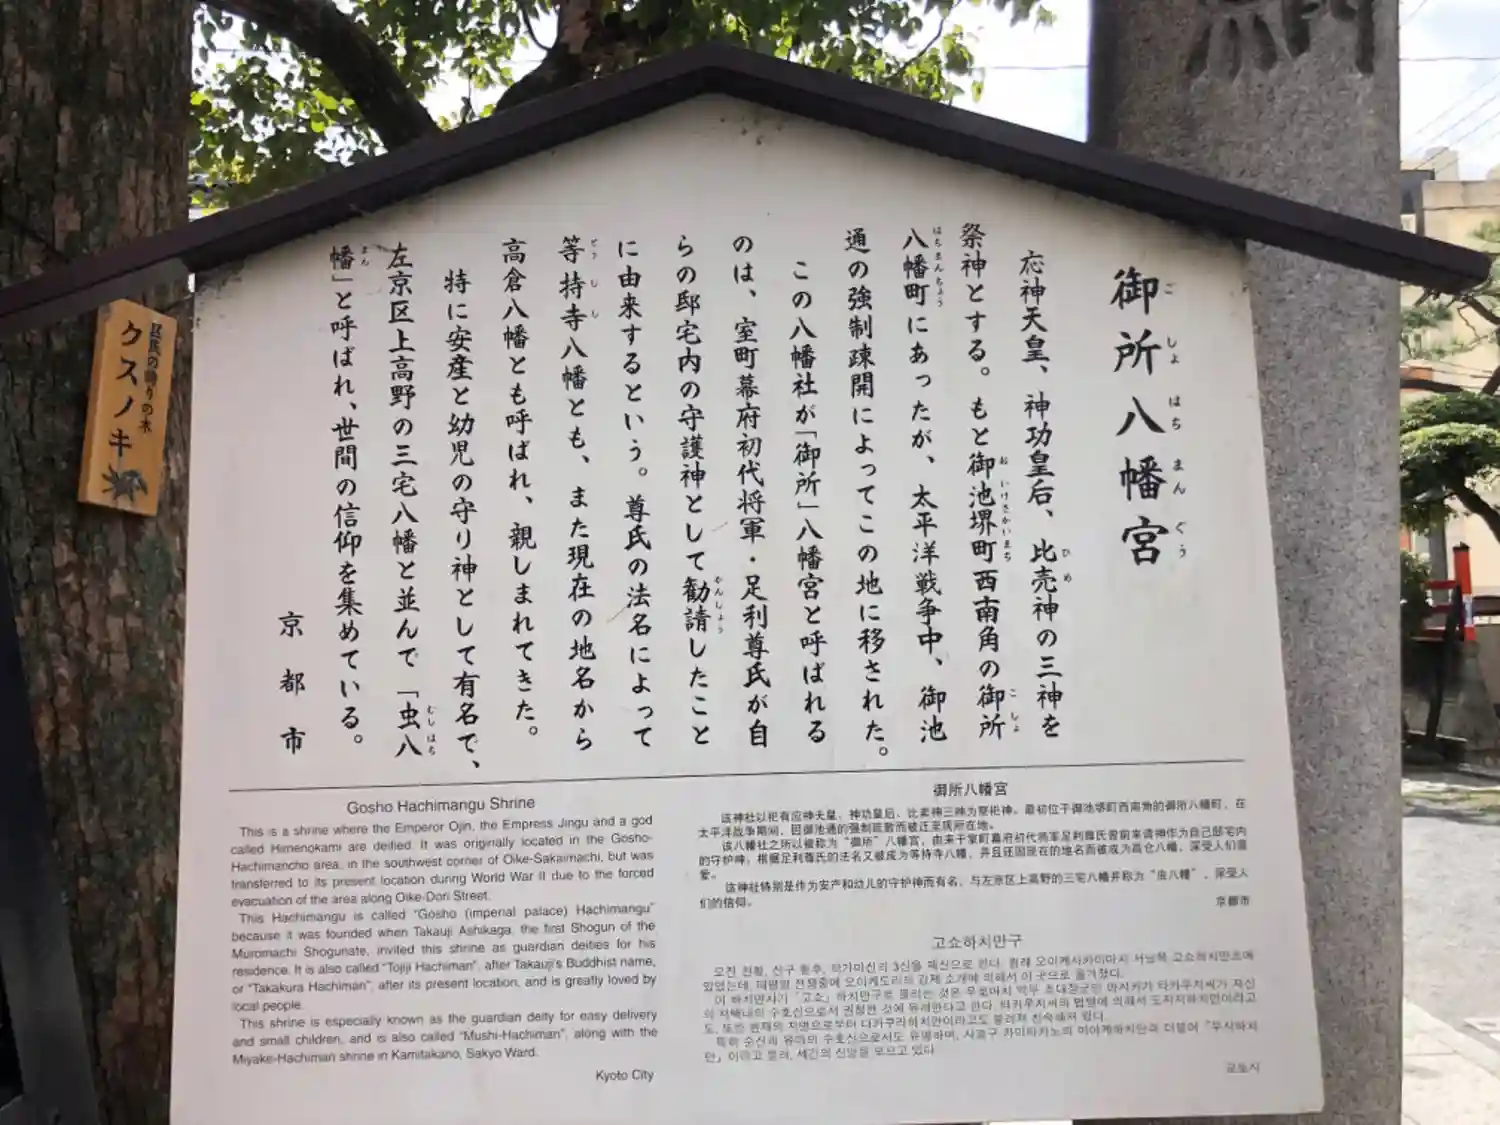 御所八幡宮
ごしょはちまんぐう
応神天皇、神功皇后、比売神の三神を
祭神とする。もと御池堺町西南角の御所
八幡町にあったが、太平洋戦争中、御池
通の強制疎開によってこの地に移された。
この八幡社が「御所」八幡宮と呼ばれる
のは、室町幕府初代将軍・足利尊氏が自
らの邸宅内の守護神として勧請したこと
に由来するという。尊氏の法名によって
等持寺八幡とも、また現在の地名から
高倉八幡とも呼ばれ、親しまれてきた。
特に安産と幼児の守り神として有名で、
左京区上高野の三宅八幡と並んで「虫八
幡」と呼ばれ、世間の信仰を集めている。
京都市
クスノキ
Gosho Hachimangu Shrine
This is a shrine where the Emperor Ojin, the Empress Jingu and a god
called Himenokami are deified. It was originally located in the Gosho-
Hachimancho area, in the southwest corner of Oike-Sakaimachi, but was
transferred to its present location during World War II due to the forced
evacuation of the area along Oike-Dori Street.
This Hachimangu is called "Gosho (imperial palace) Hachimangu"
because it was founded when Takauji Ashikaga, the first Shogun of the
Muromachi Shogunate, invited this shrine as guardian deities for his
residence. It is also called "Tojiji Hachiman", after Takauji's Buddhist name,
or "Takakura Hachiman", after its present location, and is greatly loved by
local people.
This shrine is especially known as the guardian deity for easy delivery
and small children, and is also called "Mushi-Hachiman", along with the
Miyake-Hachiman shrine in Kamitakano, Sakyo Ward.
Kyoto City
御所八幡宮
该神社以祀有应神天皇、神功皇后、比卖神三神为祭祀神。最初位于御池堺町西南角的御所八幡町，在
太平洋战争期间，因御池通的强制疏散而被迁至现所在地。
该八幡社之所以被称为"御所"八幡宫，由来于室町幕府初代将军足利尊氏曾前来请神作为自己邸宅内
的守护神，根据足利尊氏的法名又被成为等持寺八幡，并且还因现在的地名而被成为高仓八幡，深受人们喜
爱。
该神社特别是作为安产和幼儿的守护神而有名，与左京区上高野的三宅八幡并称为"虫八幡"，深受人
们的信仰。
京都市
고쇼하치만구
교토시